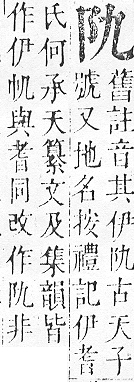 舊註音其伊古天子
號又地名按禮記伊耆
氏何承天纂文及集韻皆
作伊與耆同改作非